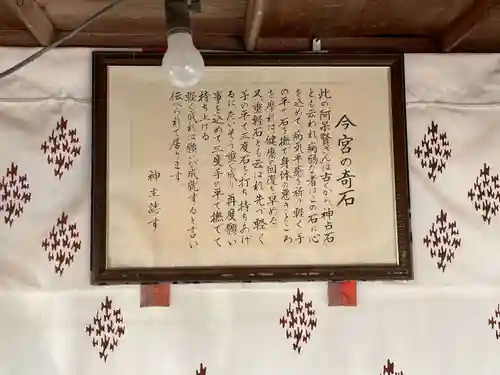 今宮の奇石
此の阿呆賢さんは古くから神占石
とも云われ病弱な者はこの石に心
を込めて病気平癒を祈り軽く手
の平で石を撫で身体の悪きところ
を摩れば健康の回復を早める
又重軽石とも云はれ先づ軽く
手の平で三度石を打ち持ちあげ
るにたいそう重く成り再度願い
事を込めて三度手の平で撫でて
持ち上げる
軽く成れば願いが成就すると言い
伝へられて居ります
神主誌す